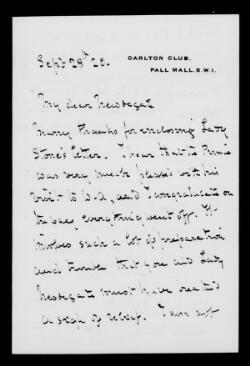 CARLTON CLUB,
PALL MALL. S.W.1.
Sept 28th 28.
My dear Newdegate
Many thanks for enclosing Lady
Stone's letter. I hear that the Prince
was very much pleased with his
visit to W.A. and I congratulate on
the way everything went off. It
involves such a lot of preparation
and trouble that you and Lady
Newdegate must have heaved
a sigh of relief. I am not